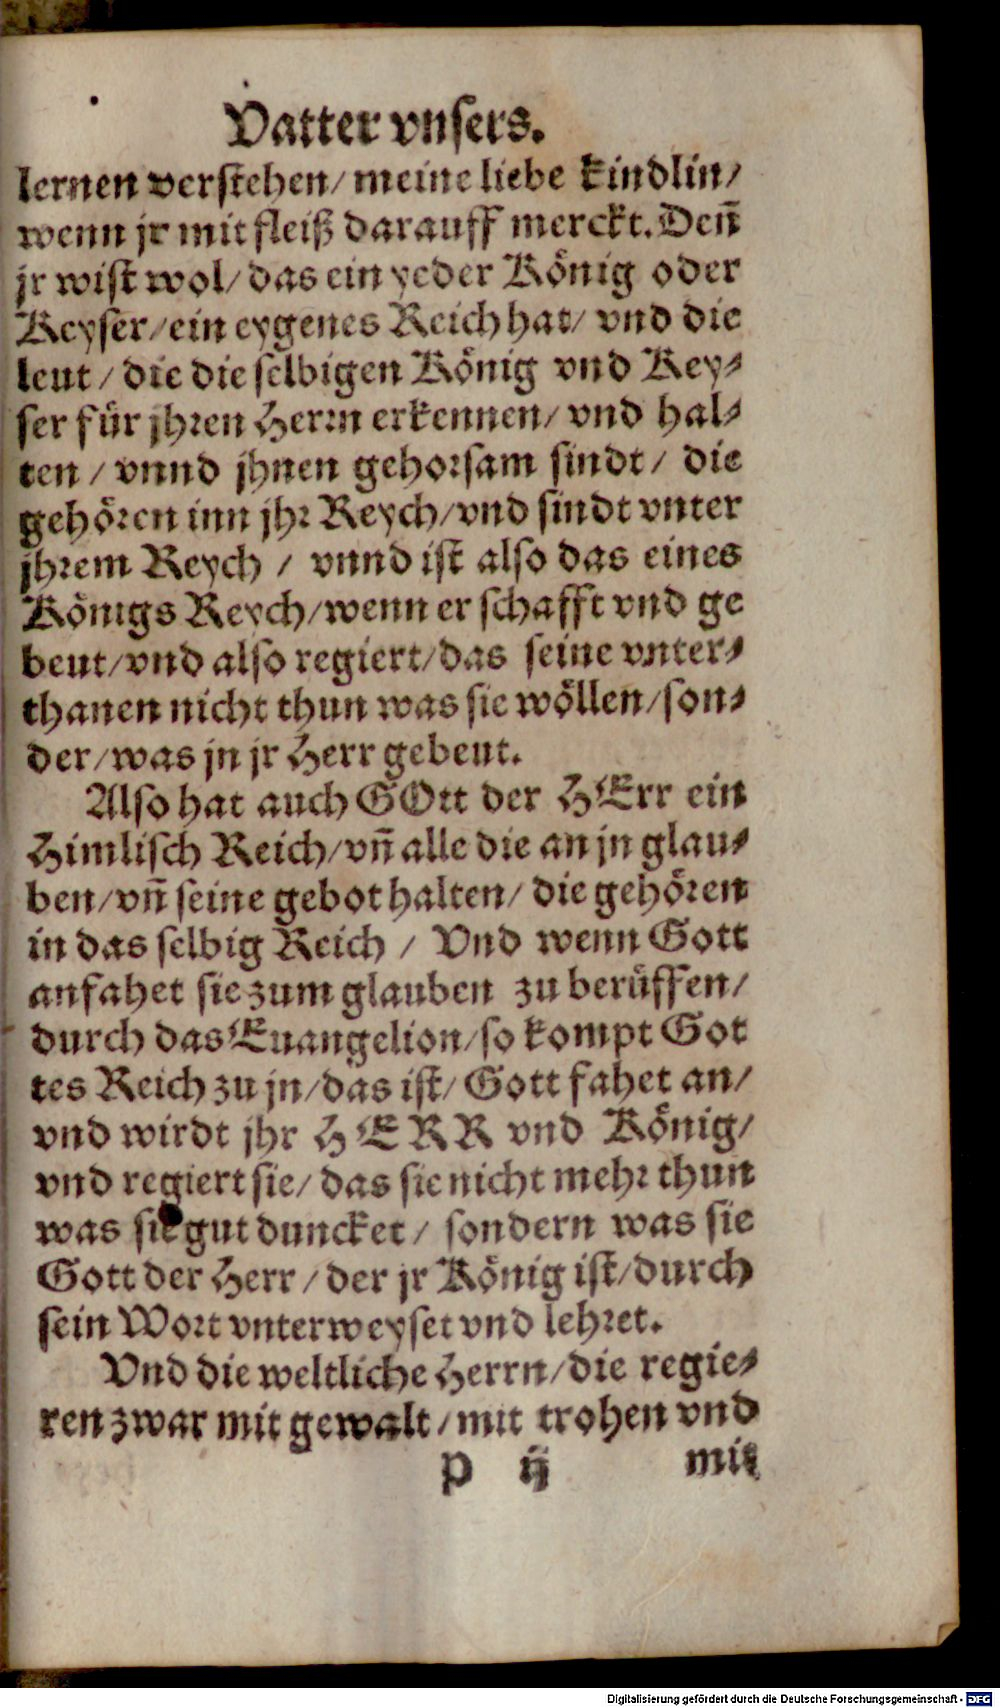 Vatter vnsers.
lernen verstehen/ meine liebe kindlin/
wenn jr mit fleiß darauff merckt. Deñ
jr wist wol/ das ein yeder König oder
Keyser/ ein eygenes Reich hat/ vnd die
leut/ die die selbigen König vnd Key-
ser für jhren Herrn erkennen/ vnd hal-
ten/ vnnd jhnen gehorsam sindt/ die
gehören inn jhr Reych/ vnd sindt vnter
jhrem Reych/ vnnd ist also das eines
Königs Reych/ wenn er schafft vnd ge
beut/ vnd also regiert/ das seine vnter-
thanen nicht thun was sie wöllen/ son-
der/ was jn jr Herr gebeut.
Also hat auch GOtt der HErr ein
Himlisch Reich/ vñ alle die an jn glau-
ben/ vñ seine gebot halten/ die gehören
in das selbig Reich/ Vnd wenn Gott
anfahet sie zum glauben zu berüffen/
durch das Euangelion/ so kompt Got
tes Reich zu jn/ das ist/ Gott fahet an/
vnd wirdt jhr HERR vnd König/
vnd regiert sie/ das sie nicht mehr thun
was sie gut duncket/ sondern was sie
Gott der Herr/ der jr König ist/ durch
sein Wort vnterweyset vnd lehret.
Vnd die weltliche Herrn/ die regie-
ren zwar mit gewalt/ mit trohen vnd
p ij mit
Digitalisierung gefördert durch die Deutsche Forschungsgemeinschaft - DFG